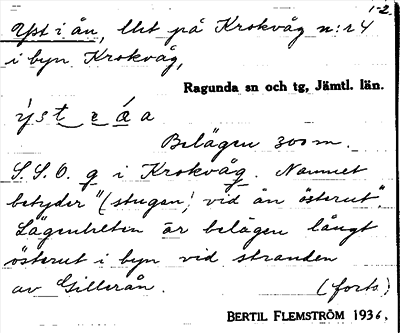 1-2.
Yst i ån, lht på Krokvåg n:r 4
i byn Krokvåg,
Ragunda sn och tg, Jämtl. län.
ýst e å a
Belägen 300 m.
S.S.O. g i Krokvåg. Namnet
betyder "(stugan) vid ån österut".
Lägenheten är belägen långt
österut i byn vid stranden
av Gillerån. (forts.)
BERTIL FLEMSTRÖM 1936.